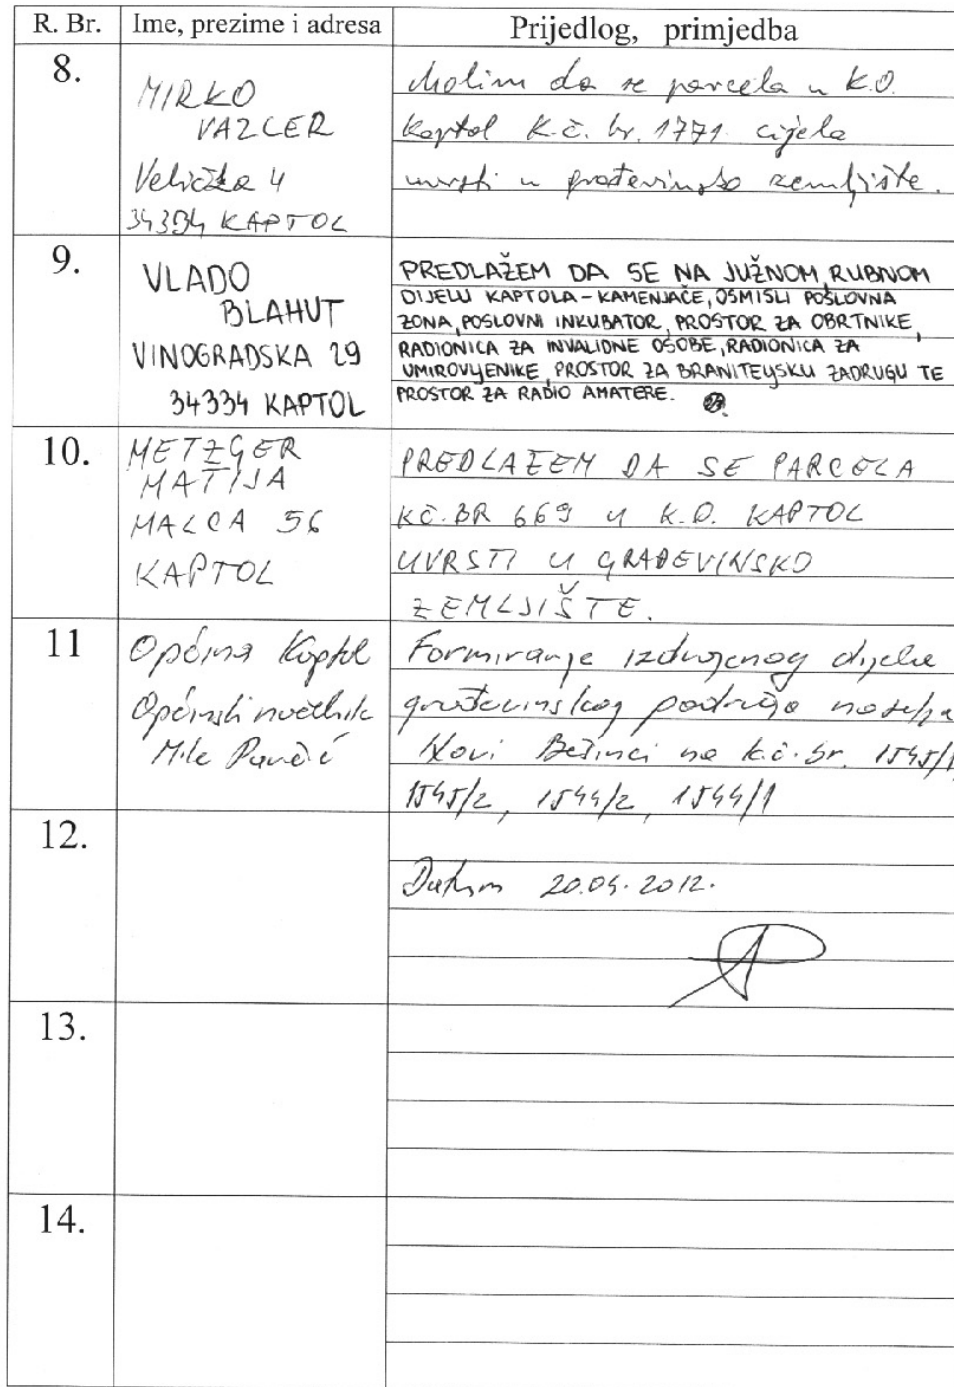 R. Br. Ime, prezime i adresa Prijedlog, primjedba
8.
MIRKO
VAZLER
Velička 4
34334 KAPTOL
Molim da se parcela u K.O.
Kaptol K.č. br. 1771 cijela
uvrsti u građevinsko zemljište.
9.
VLADO
BLAHUT
VINOGRADSKA 29
34334 KAPTOL
PREDLAŽEM DA SE NA JUŽNOM, RUBNOM
DIJELU KAPTOLA - KAMENJAČE, OSMISLI POSLOVNA
ZONA, POSLOVNI INKUBATOR, PROSTOR ZA OBRTNIKE,
RADIONICA ZA INVALIDNE OSOBE, RADIONICA ZA
UMIROVLJENIKE, PROSTOR ZA BRANITELJSKU ZADRUGU TE
PROSTOR ZA RADIO AMATERE.
10.
METZGER
MATIJA
MALCA 56
KAPTOL
PREDLAŽEM DA SE PARCELA
KČ. BR 669 U K.O. KAPTOL
UVRSTI U GRAĐEVINSKO
ZEMLJIŠTE.
11
Općina Kaptol
Općinski načelnik
Mile Pavičić
Formiranje izdvojenog dijela
građevinskog područja naselja
Novi Bešinci na k.č. br. 1545/1,
1545/2, 1544/2, 1544/1
12.
Datum 20.04.2012.
13.
14.